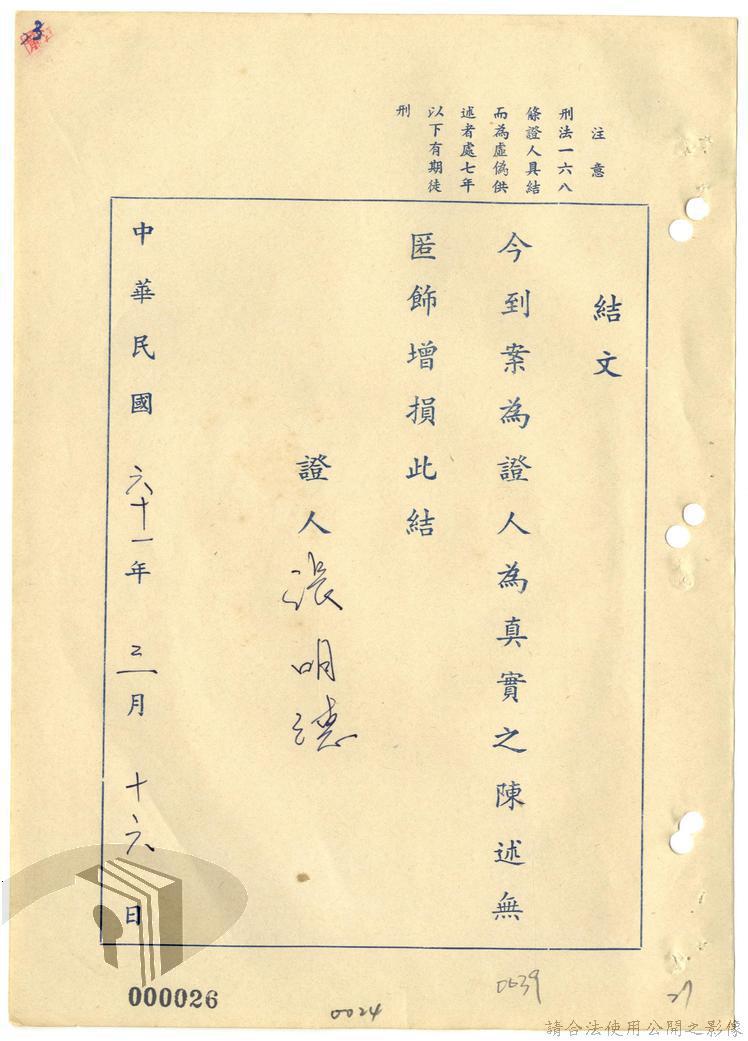 注意
刑法一六八
條證人具結
而為虛偽供
述者處七年
以下有期徒
刑
結文
今到案為證人為真實之陳述無
匿飾增損此結
證人 張明德
中華民國 六十一年 三月 十六日
000026
0024
0039
27
請合法使用公開之影像